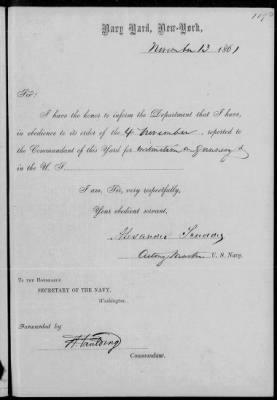 Navy Yard, New-York,
November 13 1861
Sir:
I have the honor to inform the Department that I have,
in obedience to its order of the 4 November, reported
to the Commandant of this Yard for instruction in Gunnery &
in the U. S.
I am, Sir, very respectfully,
Your obedient servant,
Alexander
Acting Master U. S. Navy.
To the Honorable
SECRETARY OF THE NAVY,
Washington.
Forwarded by
H Paulding
Commandant.